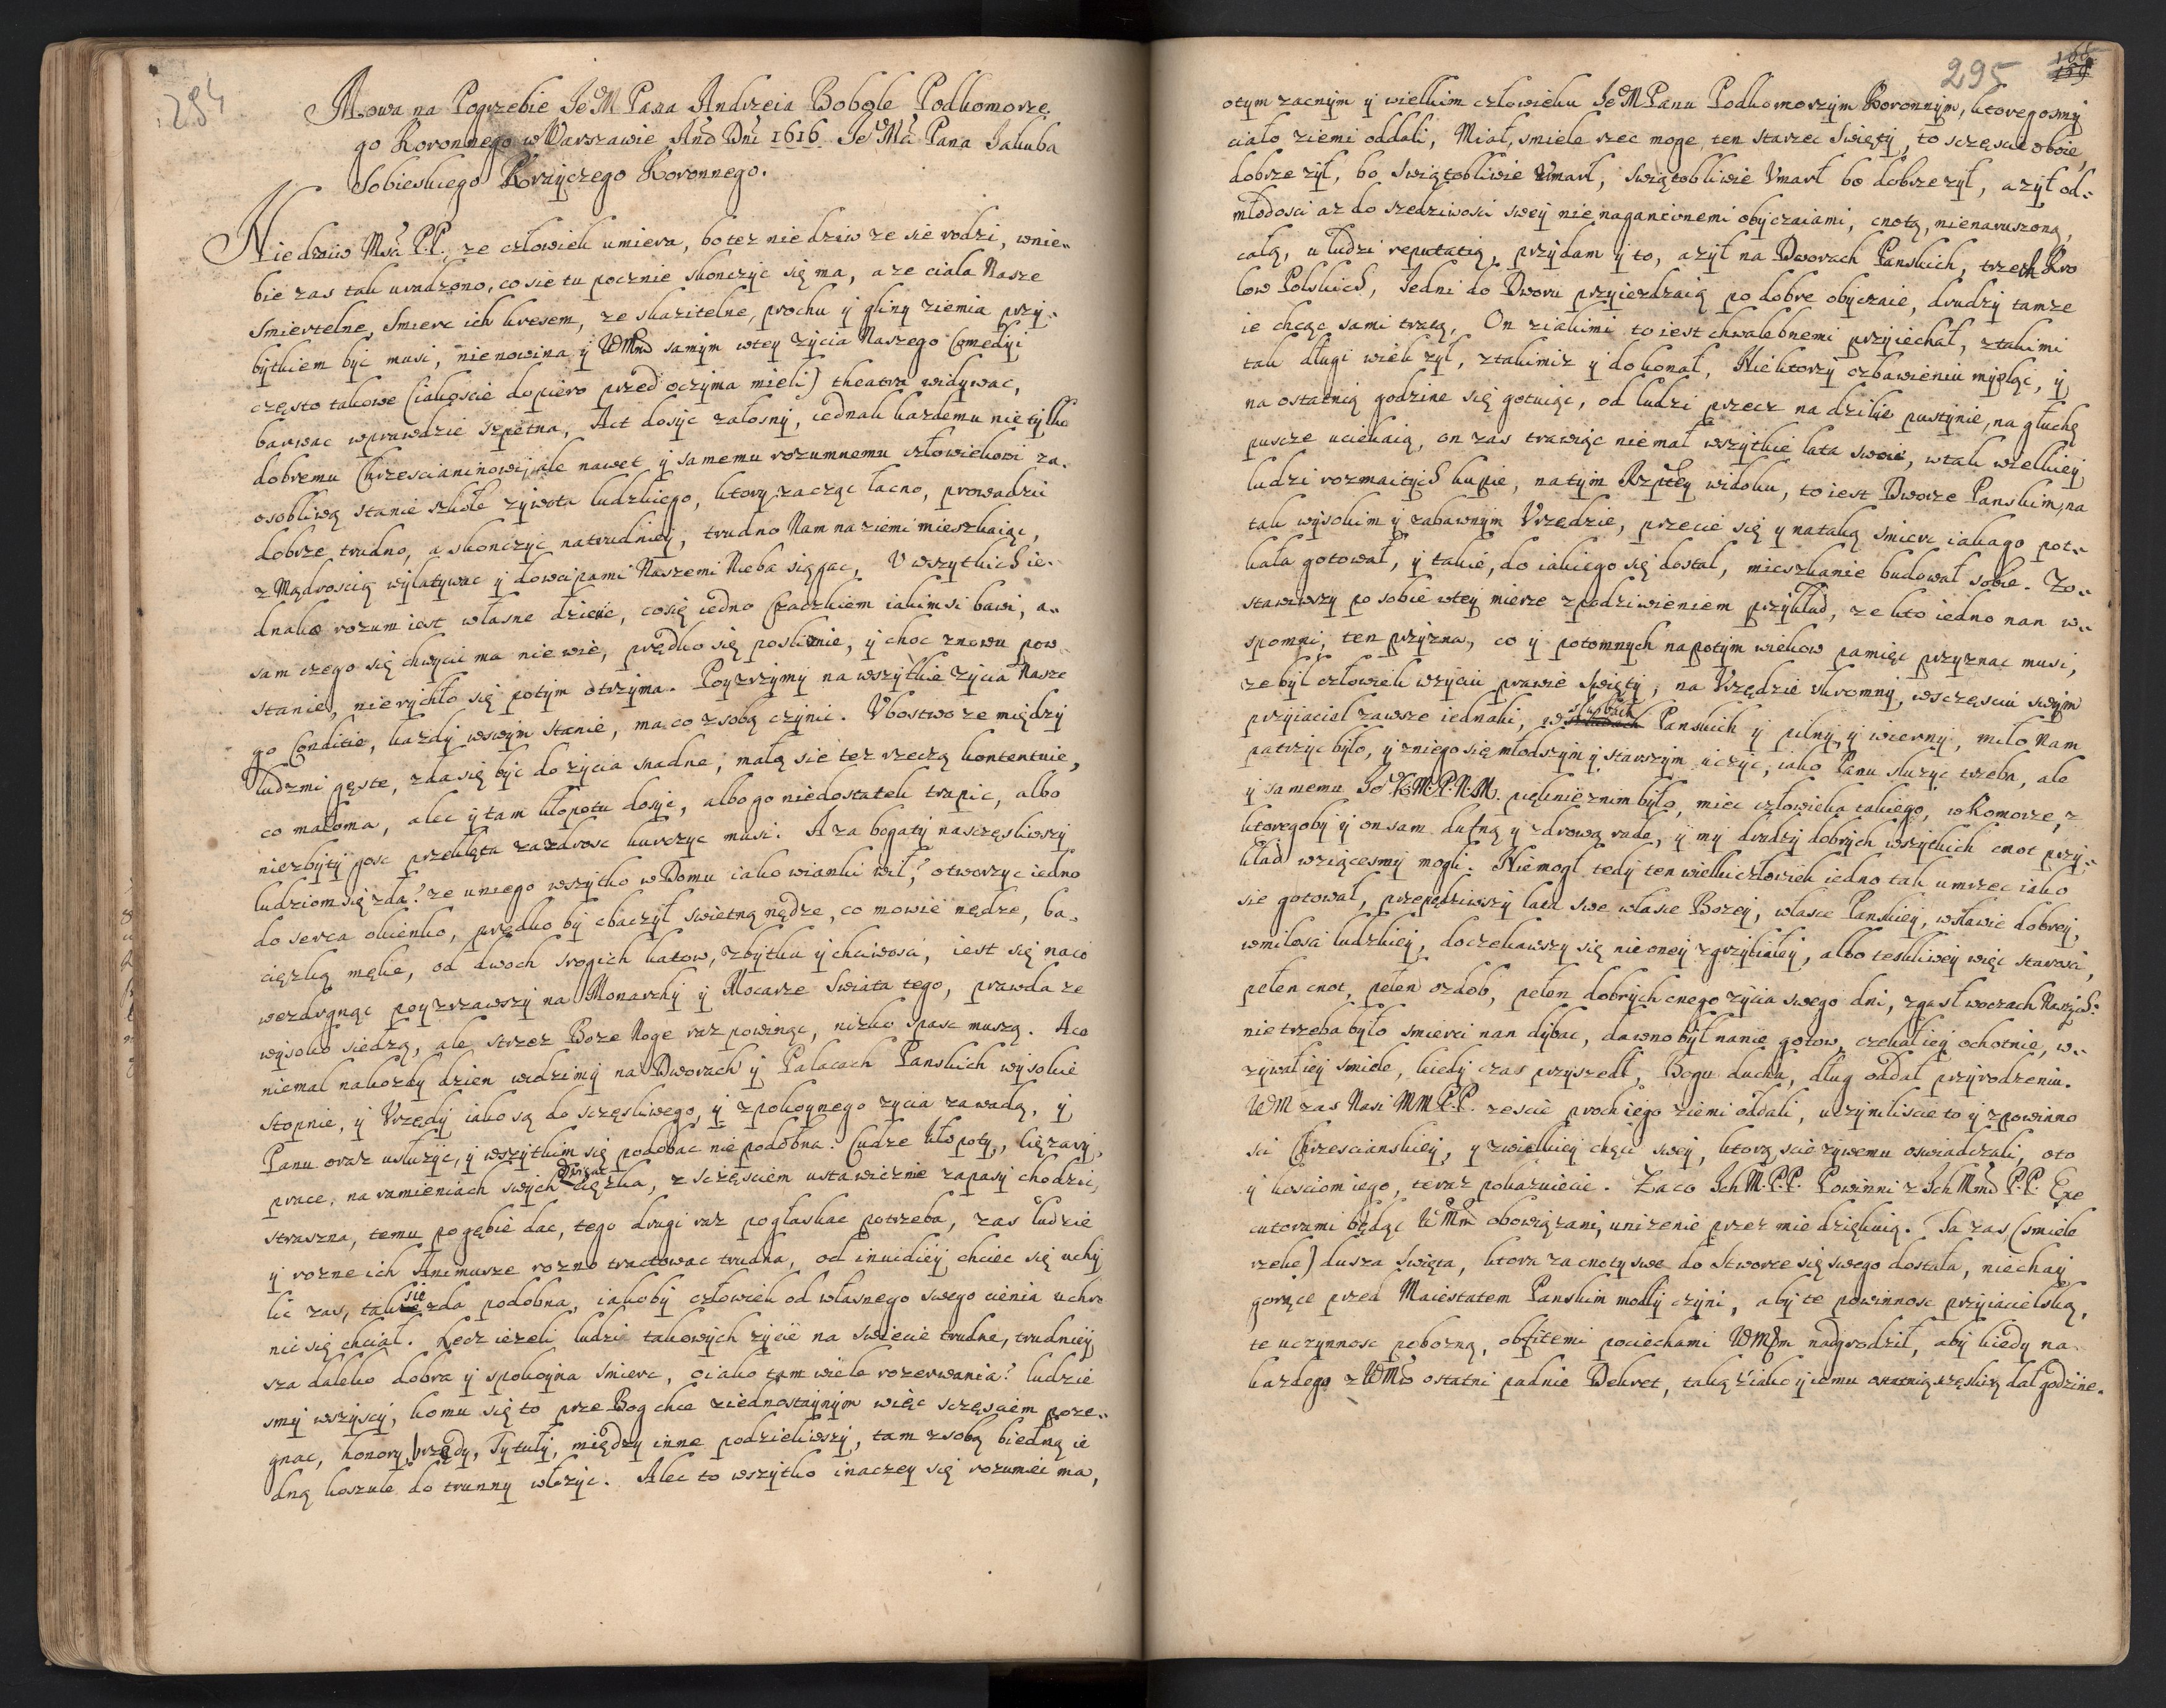 294
Mowa na Pogrzebie JeM Pana Andrzeia Bobole Podkomorze.
go Koronnego w Warszawie Año Dni 1616 JeMci Pana Jakuba
Sobieskiego Krayczego Koronnego.
Niedziw Msci P.P. ze człowiek umiera, botez niedziw ze sie rodzi, wnie„
bie zas tak uradzono, co sie tu pocznie skonczyc się ma, a ze ciała Nasze
Smiertelne, Smierc ich kresem, ze skazitelne, prochu ÿ gliny ziemia przÿ„
bÿtkiem bÿc musi, nienowina ÿ samÿm wteÿ zÿcia Naszego Comedÿi
często takowe (iakoscie dopiero przed oczÿma mieli) theatra widÿwac,
barwac wprawdzie szpetna, Act dosÿc załosnÿ, iednak kazdemu nie tÿlko
dobremu Chrzescianinowi, ale nawet ÿ samemu rozumnemu człowiekowi za„
osobliwą stanie szkołe zÿwota ludzkiego, ktory zacząc łacno, prowadzic
dobrze trudno, a skonczÿc natrudnieÿ, trudno Nam na ziemi mieszkaiąc,
z Mądroscią wÿlatÿwac ÿ dowcipami Naszemi Nieba sięgac, V wszytkich ie„
dnako rozum iest własne dziecie, co się iedno Czaczkiem iakimsi bawi, a„
sam czego się chwÿcic ma nie wie, prędko się posliznie, ÿ choc znowu pow„
stanie, nierÿchło się potÿm otrzÿma. Poÿzrzÿmÿ na wszÿtkie zÿcia Nasze
go Conditie, kazdÿ wswÿm stanie, ma co z sobą czÿnic. Vbostwo ze międzÿ
ludzmi gęste, zda się bÿc do zÿcia snadne, małą sie tez rzeczą kontentuie,
co małoma, alec ÿ tam kłopotu dosÿc, albo go niedostatek trapic, albo
niezbÿtÿ gosc przeklęta zazdrosc kurczyc musi. A za bogatÿ nasczęsliwszÿ
ludziom się zda? ze u niego wszÿtko w Domu iako wianki wił, otworzyc iedno
do serca okienko, prędko bÿ obaczÿł swietną nędze, co mowię nędze, ba„
cięzką mękie, od dwoch srogich katow, zbÿtku ÿ chciwosci, iest się na co
wezdrgnąc poÿzrzawszÿ na Monarchÿ ÿ Mocarze Swiata tego, prawda ze
wÿsoko siedzą, ale strzez Boze Noge raz powinąc, nizko spasc muszą. Aco
niemal nakozdÿ dzien widzimÿ na Dworach ÿ Pałacach Panskich wÿsokie
stopnie, ÿ Vrzędÿ iako są do sczęsliwego, ÿ zpokoÿnego zycia zawadą, ÿ
Panu oraz usłuzÿc, ÿ wszÿtkim się podobac nie podobna. Cudze kłopotÿ, cięzarÿ,
prace, na ramieniach swÿch dzwigac cięzka, z sczęsciem ustawicznie zapasÿ chodzic,
straszna, temu po gębie dac, tego drugi raz pogłaskac potrzeba, zas ludzie
ÿ rozne ich Animusze rozno tractowac trudna, od inuidiieÿ chciec się uchÿ
lic zas, tak sie zda podobna, iakobÿ człowiek od własnego swego cienia uchro
nic się chciał. Lecz iezeli ludzi takowÿch zÿcie na swiecie trudne, trudnieÿ
sza daleko dobra ÿ spokoÿna smierc, o iako tam wiele rozerwania? ludzie
smÿ wszÿscÿ, komu się to prze Bog chce ziednostaÿnÿm więc sczęsciem poze„
gnac, honorÿ, Vrzędy, Tÿtułÿ, międzÿ inne podzieliwszÿ, tam z sobą biedną ie
dną koszule do trunnÿ włozÿc. Alec to wszÿtko inaczeÿ się rozumiec ma,
295
o tÿm zacnÿm ÿ wielkim człowieku JeM Panu Podkomorzÿm Koronnÿm, ktoregosmÿ
ciało ziemi oddali, Miał, smiele rzec moge ten starzec Swiętÿ, to sczęscie oboie,
dobrze zÿł, bo Swiątobliwie Vmarł, swiątobliwie Vmarł bo dobrze zÿł, a zÿł od„
młodosci az do szedziwosci sweÿ nienaganionemi obÿczaiami, cnotą, nienaruszoną,
całą, u ludzi reputatią, przÿdam ÿ to, a zÿł na Dworach Panskich, trzech Kro
low Polskich, Jedni do Dworu przÿiezdzaią po dobre obÿczaie, drudzÿ tamze
ie chcąc sami tracą, On z iakimi to iest chwalebnemi przÿiechał, z takimi
tak długi wiek zÿł, z takimiz ÿ dokonał, Niektorzÿ o zbawieniu mÿsląc, ÿ
na ostatnią godzine się gotuiąc, od ludzi precz na dzikie pustÿnie, na głuchę
puscze uciekaią, on zas trawiąc niemal wszÿtkie lata swoie, w tak wielkieÿ
ludzi rozmaitÿch kupie, na tÿm Rzpłteÿ widoku, to iest Dworze Panskim, na
tak wÿsokim ÿ zabawnÿm Vrzędzie, przecie się ÿ na taką smierc iaka go pot„
kała gotował, ÿ takie, do iakiego się dostał, mieszkanie budował sobie. Zo„
stawiwszÿ po sobie w teÿ mierze z podziwieniem przÿkład, ze kto iedno nan w„
spomni, ten przÿzna, co ÿ potomnÿch napotÿm wiekow pamięc przyznac musi,
ze bÿł człowiek w zÿciu prawie Swiętÿ, na Vrzędzie skromnÿ, w sczęsciu swÿm
przÿiaciel zawsze iednaki, w słuzbach Panskich ÿ pilnÿ ÿ wiernÿ, miło Nam
patrzÿc bÿło, ÿ z niego się młodszÿm ÿ starszÿm uczÿc, iako Panu słuzÿc trzeba, ale
ÿ samemu Je K.M.P.N.M. pięknie z nim bÿło, miec człowieka takiego, w Komorze, z
ktoregobÿ ÿ on sam dufną ÿ zdrową rade, ÿ mÿ drudzÿ dobrÿch wszÿtkich cnot przÿ„
kład wziącesmÿ mogli. Niemogł tedÿ ten wielki człowiek iedno tak umrzec iako
sie gotował, przepędziwszÿ lata swe w łasce Bozeÿ, w łasce Panskieÿ, w sławie dobreÿ,
w miłosci ludzkieÿ, doczekawszÿ się nie oneÿ zgrzÿbiałeÿ, albo teskliweÿ więc starosci,
pełen cnot, pełen ozdob, pełen dobrÿch cnego zÿcia swego dni, zgasł w oczach Naszÿch.
nie trzeba bÿło smierci nan dÿbac, dawno bÿł na nie gotow, czekał ieÿ ochotnie, w„
zÿwał ieÿ smiele, kiedÿ czas przÿszedł, Bogu ducha, dług oddał przÿrodzeniu.
WM zas Nasi MMPP. zescie proch iego ziemi oddali, uczÿniliscie to ÿ z powinno
sci Chrzescianskieÿ, ÿ z wielkieÿ chęci sweÿ, ktorą scie zÿwemu oswiadczali, oto
ÿ kosciom iego, teraz pokazuiecie. Zaco Ich M.P.P. Powinni z Ich P.P. Exe
cutorami będąc obowiązani, unizenie przez mie dziękuią. Ta zas (smiele
rzeke) dusza Swięta, ktora za cnotÿ swe do Stworce się swego dostała, niechaÿ
gorące przed Maiestatem Panskim modłÿ czÿni, abÿ te powinnosc przÿiacielską,
te uczÿnnosc poboznę, obfitemi pociechami nadgrodził, abÿ kiedÿ na
kazdego z ostatni padnie Dekret, taką iako ÿ iemu ostatnią sczęsliwą dał godzine.